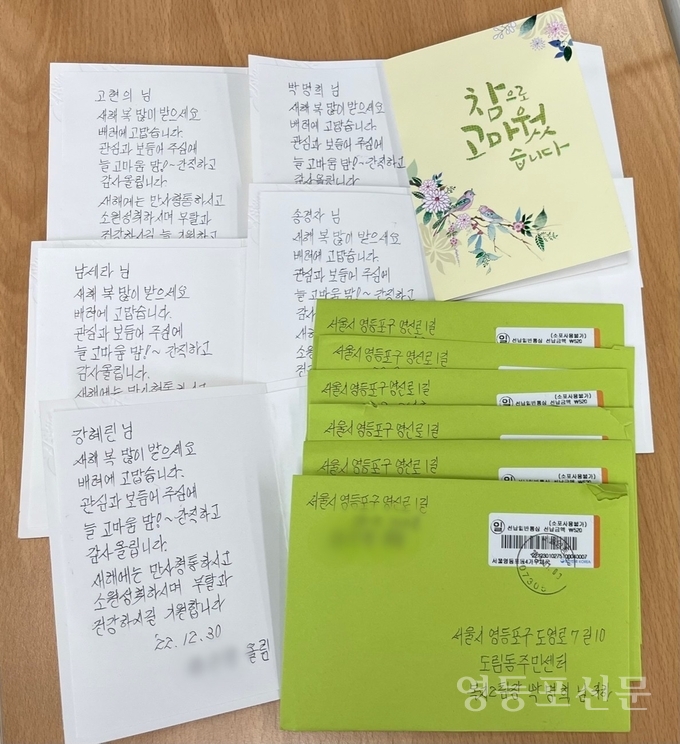 고현의 님
새해 복 많이 받으세요
배려에 고맙습니다.
관심과 보듬어 주심에
늘 고마움 맘!~간직하고
감사올립니다.
새해에는 만사형통하시고
소원성취하시며 부탈과
건강하시길 기원하고
박명희 님
새해 복 많이 받으세요
배려에 고맙습니다.
관심과 보듬어 주심에
늘 고마움 맘!~간직하고
감사올립니다.
참으로
고마웠
습니다
송경자 님
새해 복 많이 받으세요
배려에 고맙습니다.
관심과 보듬어 주심에
늘 고마움 맘!~간직하고
감사
새해
소원
건강
남세라 님
새해 복 많이 받으세요
배려에 고맙습니다.
관심과 보듬어 주심에
늘 고마움 맘!~간직하고
감사올립니다.
새해에는 만사형통하시고
강혜린 님
새해 복 많이 받으세요
배려에 고맙습니다.
관심과 보듬어 주심에
늘 고마움 맘!~간직하고
감사올립니다.
새해에는 만사형통하시고
소원성취하시며 부탈과
건강하시길 기원합니다
22.12.30
올림
서울시 영등포구 영신로 1길
(소포사용불가)
선납일반통상 선납금액 ₩520
서울시 영등포구 영신로 1길
서울시 영등포구 영신로 1길
(소포사용불가)
선납일반통상 선납금액 ₩520
서울시 영등포구 영신로 1길
서울시 영등포구 영신로 1길
(소포사용불가)
선납일반통상 선납금액 ₩520
서울시 영등포구 영신로 1길
(소포사용불가)
일 선납일반통상 선납금액 ₩520
07300
서울시 영등포구 도영로 7길 10
도림동주민센터
복지2팀장 박명희 님
영등포신문